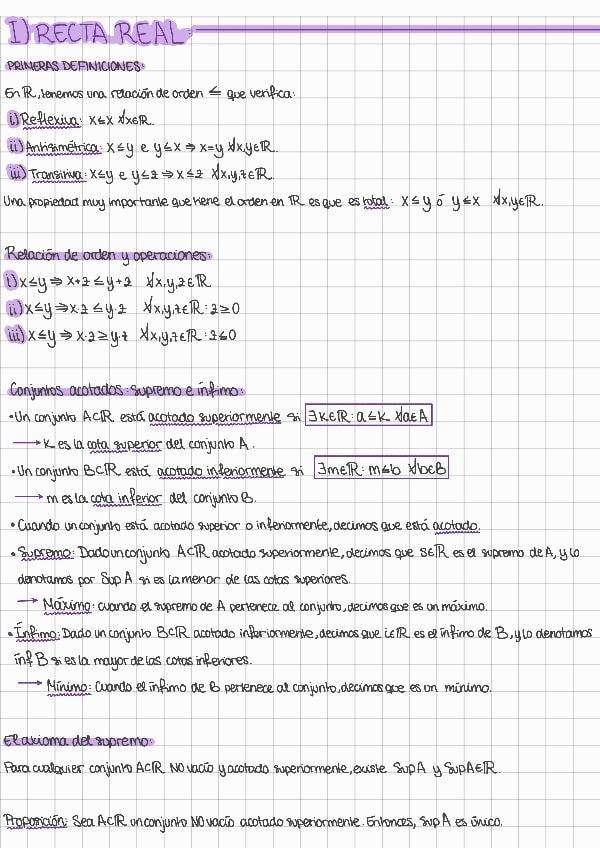 I) RECTA REAL
PRIMERAS DEFINICIONES:
En ℝ, tenemos una relación de orden ≤ que verifica:
i) Reflexiva: x≤x ∀x∈ℝ.
ii) Antisimétrica: x≤y e y≤x ⇒ x=y ∀x,y∈ℝ.
iii) Transitiva: x≤y e y≤z ⇒ x≤z ∀x,y,z∈ℝ.
Una propiedad muy importante que tiene el orden en ℝ es que es total: x≤y ó y≤x ∀x,y∈ℝ.
Relación de orden y operaciones:
i) x≤y ⇒ x+z ≤ y+z ∀x,y,z∈ℝ
ii) x≤y ⇒ x·z ≤ y·z ∀x,y,z∈ℝ: z≥0
iii) x≤y ⇒ x·z ≥ y·z ∀x,y,z∈ℝ: z≤0
Conjuntos acotados: supremo e ínfimo:
•Un conjunto A⊂ℝ está acotado superiormente si ∃K∈ℝ: a≤K ∀a∈A
→ K es la cota superior del conjunto A.
•Un conjunto B⊂ℝ está acotado inferiormente si ∃m∈ℝ: m≤b ∀b∈B
→ m es la cota inferior del conjunto B.
•Cuando un conjunto está acotado superior o inferiormente, decimos que está acotado.
•Supremo: Dado un conjunto A⊂ℝ acotado superiormente, decimos que s∈ℝ es el supremo de A, y lo
denotamos por Sup A si es la menor de las cotas superiores.
→ Máximo: cuando el supremo de A pertenece al conjunto, decimos que es un máximo.
•Ínfimo: Dado un conjunto B⊂ℝ acotado inferiormente, decimos que i∈ℝ es el ínfimo de B, y lo denotamos
ínf B si es la mayor de las cotas inferiores.
→ Mínimo: Cuando el ínfimo de B pertenece al conjunto, decimos que es un mínimo.
El axioma del supremo:
Para cualquier conjunto A⊂ℝ NO vacío y acotado superiormente, existe Sup A y Sup A∈ℝ.
Proposición: Sea A⊂ℝ un conjunto NO vacío acotado superiormente. Entonces, sup A es único.